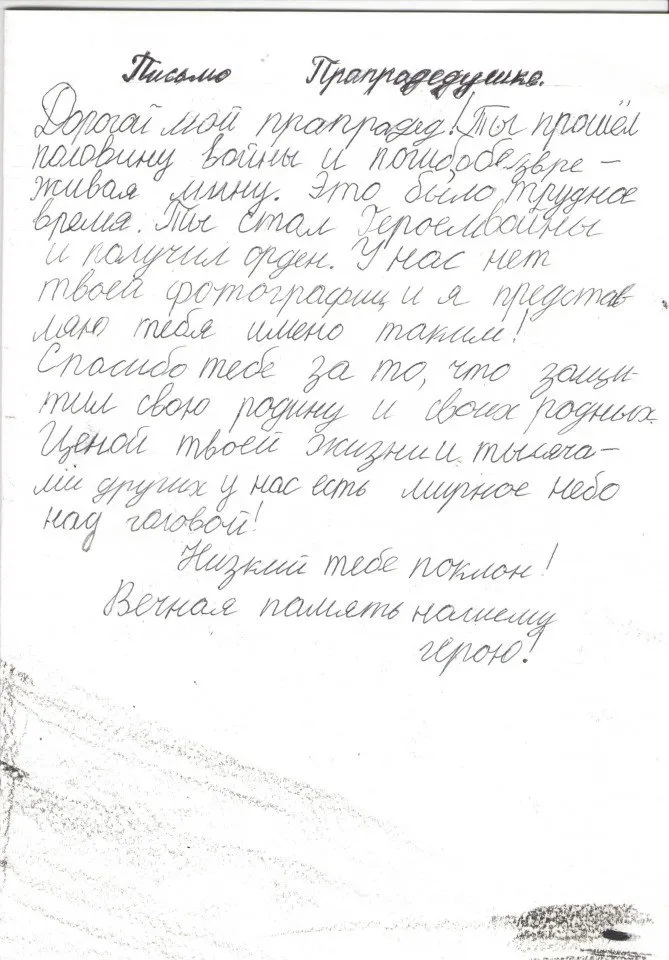 Письмо Прапрадедушке.
Дорогай мой прапрадед! Ты прошёл
половину войны и погиб обезвре-
живая мину. Это было трудное
время. Ты стал Героем войны
и получил орден. У нас нет
твоей фотографии и я представ
ляю тебя имено таким!
Спасибо тебе за то, что защи-
тил свою родину и своих родных.
Ценой твоей жизни и тысяча-
ми других у нас есть мирное небо
над головой!
Низкий тебе поклон!
Вечная память нашему
герою!